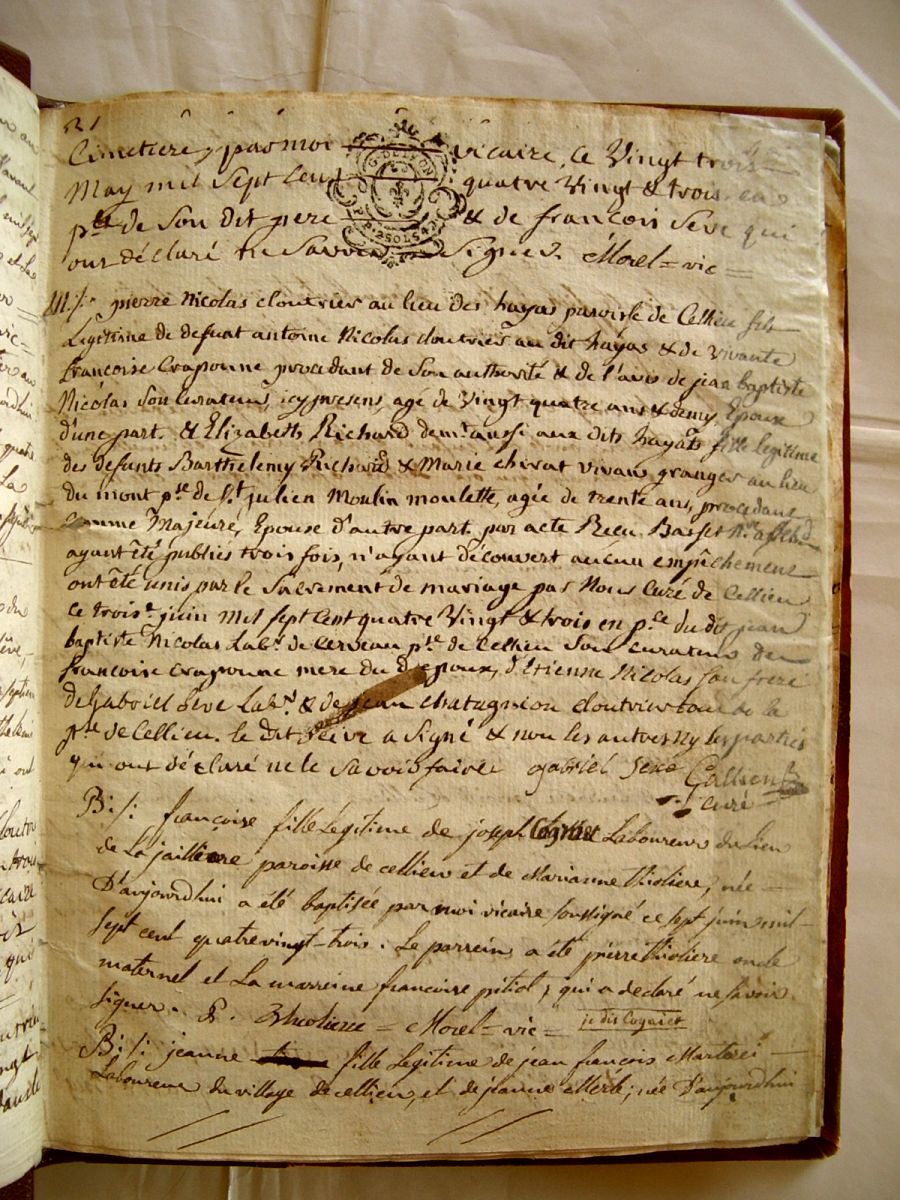 Cimetiere, par moi vicaire, ce Vingt trois
May mil Sept Cent quatre Vingt & trois, en
p.ce de Son dit pere & de françois Seve qui
ont déclaré ne Savoir Signer. Morel = vic =
M./. pierre Nicolas cloutrier au lieu des hayas paroisse de Cellieu fils
Légitime de defunt antoine Nicolas cloutrier au dit häyas & de vivante
francoise Crapoune procedant de Son authorité & de l'avis de jean baptiste
Nicolas Son Curateur, icy present, agé de Vingt quatre ans & demy Epoux
d'une part. & Elizabeth Richard dem.t aussi aux dits hayats fille legitime
des defunts Barthelemy Richard & Marie chirat vivans granger au lieu
du mont p.sse de S.t julien Moulin moulette, agée de trente ans, procedant
Comme Majeure, Epouse d'autre part. par acte Recu Basset
ayant été publiés trois fois, n'ayant découvert aucun empêchement
ont été unis par le Sacrement de mariage par Nous Curé de Cellieu
ce trois.e juin Mil sept Cent quatre Vingt & trois en p.ce du dit jean
baptiste Nicolas Lab.r de Cerveau p.sse de Cellieu Son curateur de
francoise Crapoune mere du d. epoux, d'Etienne Nicolas Son frere
de Gabriel Seve Lab.r & de jean chatagnion cloutrier tous de la
p.sse de Cellieu. le dit Seive a Signé & non les autres Ny les parties
qui ont déclaré ne le Savoir faire gabriel Seve Gallien
curé
B:/: françoise fille Légitime de joseph Cognet Laboureur du lieu
de La jaillière paroisse de cellieu et de Marianne thioliere, née
D'aujourdhui a été baptisée par moi vicaire soussigné ce sept juin mil
Sept cent quatrevingt-trois. Le parrein a été pierre thioliere oncle
maternel et La marreine francoise pitiot, qui a declaré ne Savoir
Signer. P. thioliere = Morel = vic = je dis Cognet
B:/: jeanne fille Légitime de jean francois
Laboureur du village de cellieu, et de jeanne Merle; née D'aujourdhui